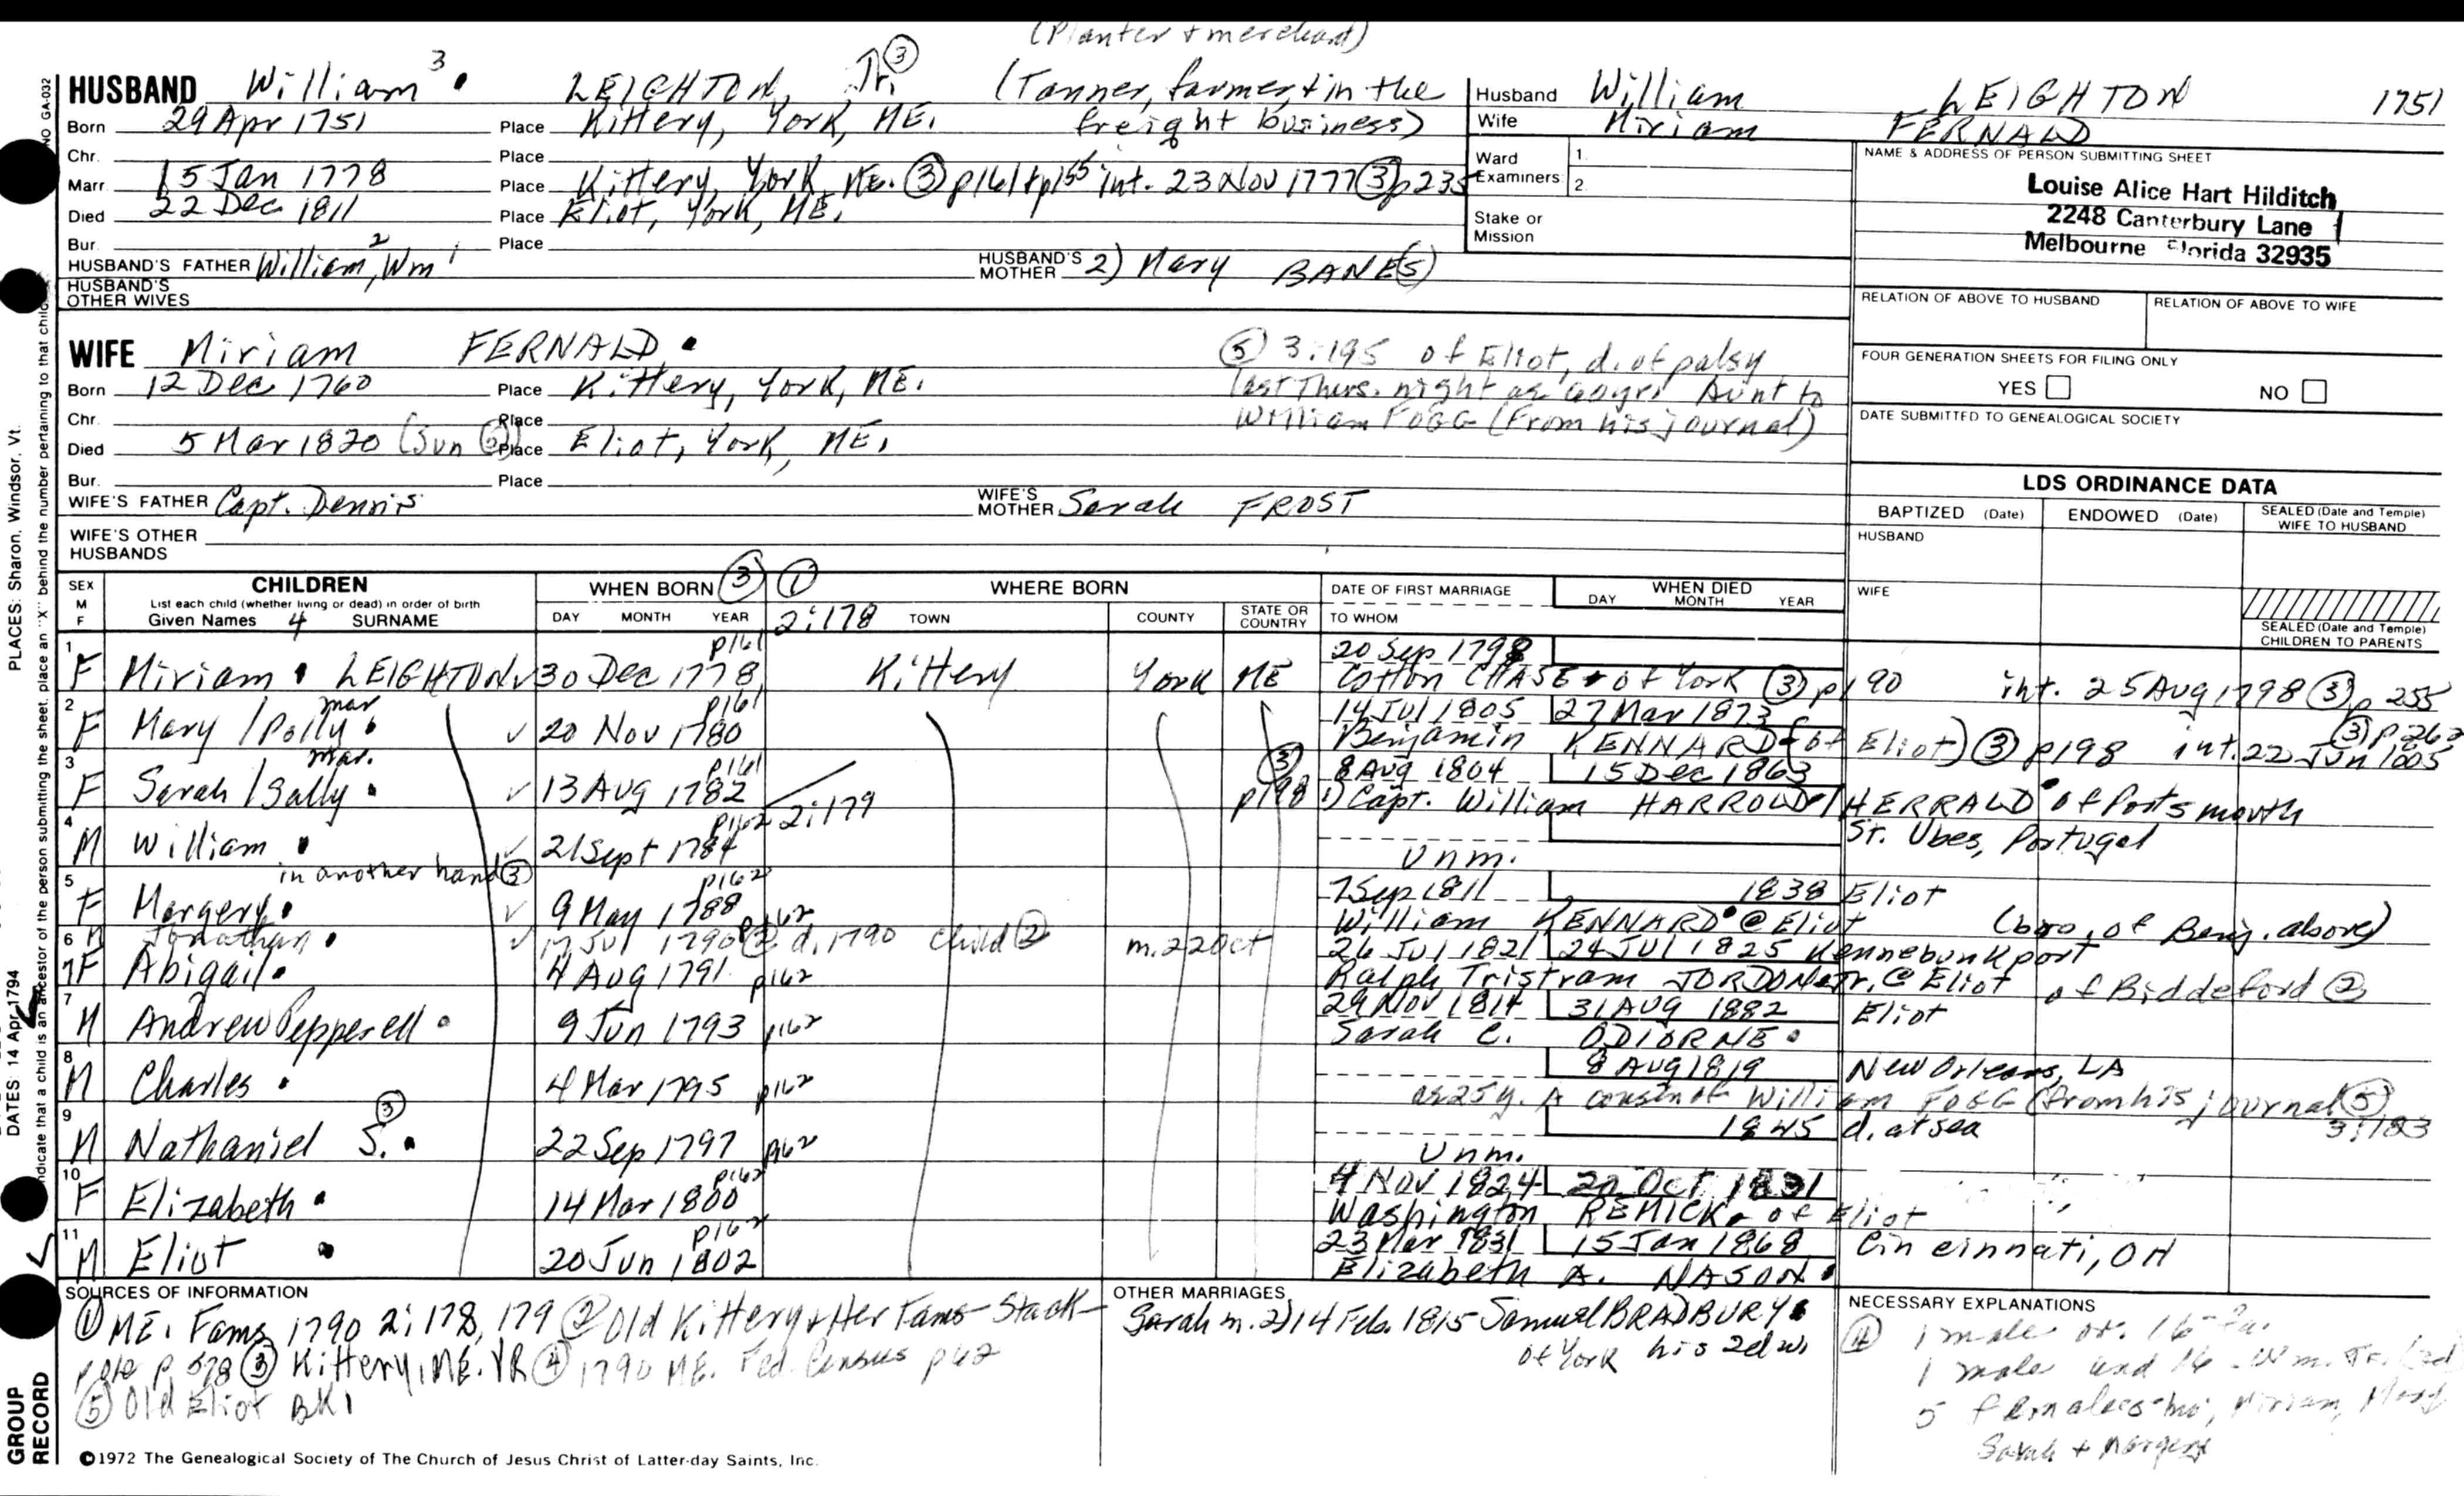 (Planter + merchant)
HUSBAND William 3 LEIGHTON, Jr. ③ (Tanner, farmer, + in the
freight business)
Born 29 Apr 1751 Place Kittery, York, ME.
Chr. Place
Marr. 15 Jan 1778 Place Kittery, York, ME. ③ p161 + p155 int. 23 Nov 1777 ③ p235
Died 22 Dec 1811 Place Eliot, York, ME.
Bur. Place
HUSBAND'S FATHER William 2, Wm 1 HUSBAND'S MOTHER 2) Mary BANE(S)
HUSBAND'S OTHER WIVES
Husband William LEIGHTON 1751
Wife Miriam FERNALD
Ward Examiners 1.
2.
Stake or Mission
NAME & ADDRESS OF PERSON SUBMITTING SHEET
Louise Alice Hart Hilditch
2248 Canterbury Lane
Melbourne Florida 32935
RELATION OF ABOVE TO HUSBAND RELATION OF ABOVE TO WIFE
FOUR GENERATION SHEETS FOR FILING ONLY
YES NO
DATE SUBMITTED TO GENEALOGICAL SOCIETY
WIFE Miriam FERNALD
Born 12 Dec 1760 Place Kittery, York, ME.
Chr. Place
Died 5 Mar 1820 (Sun ⑤) Place Eliot, York, ME.
Bur. Place
⑤ 3:195 of Eliot, d. of palsy
last Thurs. night ae 60yrs Aunt to
William FOGG (From his journal)
WIFE'S FATHER Capt. Dennis WIFE'S MOTHER Sarah FROST
WIFE'S OTHER HUSBANDS
LDS ORDINANCE DATA
BAPTIZED (Date) ENDOWED (Date) SEALED (Date and Temple) WIFE TO HUSBAND
HUSBAND
WIFE
SEALED (Date and Temple) CHILDREN TO PARENTS
SEX M F CHILDREN WHEN BORN ③ ① WHERE BORN DATE OF FIRST MARRIAGE WHEN DIED
List each child (whether living or dead) in order of birth
Given Names 4 SURNAME DAY MONTH YEAR 2:178 TOWN COUNTY STATE OR COUNTRY TO WHOM DAY MONTH YEAR
1 F Miriam LEIGHTON 30 Dec 1778 p161 Kittery York ME 20 Sep 1798
Cotton CHASE of York ③ p190 int. 25 Aug 1798 ③ p 255
2 F Mary / Polly mar 20 Nov 1780 p161 14 Jul 1805 27 Mar 1873
Benjamin KENNARD (of Eliot) ③ p198 int. 22 Jun 1805 ③ p 263
3 F Sarah / Sally mar. 13 Aug 1782 p161 8 Aug 1804 15 Dec 1863
③ p198 1) Capt. William HARROLD / HERRALD of Portsmouth
4 M William 21 Sept 1784 p162 2:179 St. Ubes, Portugal
Unm.
in another hand ③
5 F Margery 9 May 1788 p162 7 Sep 1811 1838 Eliot
William KENNARD @ Eliot (bro. of Benj. above)
6 M Jonathan 17 Jul 1790 ② p162 d. 1790 child ② m. 22 Oct
7 F Abigail 4 Aug 1791 p162 26 Jul 1821 24 Jul 1825 Kennebunkport
Ralph Tristram JORDON Jr. @ Eliot of Biddeford ②
7 M Andrew Pepperell 9 Jun 1793 p162 29 Nov 1814 31 Aug 1882 Eliot
Sarah C. ODIORNE
8 M Charles 4 Mar 1795 p162 8 Aug 1819 New Orleans, LA
ae 25 y. A cousin of William FOGG (From his journal ⑤ 3:183
9 M Nathaniel S. ③ 22 Sep 1797 p162 1845 d. at sea
Unm.
10 F Elizabeth 14 Mar 1800 p162 4 Nov 1824 Oct 1831
Washington REMICK of Eliot
11 M Eliot 20 Jun 1802 p162 23 Mar 1831 15 Jan 1868 Cincinnati, OH
Elizabeth A. NASON
SOURCES OF INFORMATION
① ME. Fams 1790 2:178, 179 ② Old Kittery + Her Fams - Stack-
pole p. 578 ③ Kittery, ME. VR ④ 1790 ME. Fed. Census p62
⑤ Old Eliot BK1
OTHER MARRIAGES
Sarah m. 2) 14 Feb. 1815 Samuel BRADBURY
of York his 2d w.
NECESSARY EXPLANATIONS
④ 1 male ov. 16 - Fa.
1 male und 16 - Wm. Jr. (3d)
5 females - mo, Miriam, Mary
Sarah + Margery
©1972 The Genealogical Society of The Church of Jesus Christ of Latter-day Saints, Inc.
NO GA-032
PLACES: Sharon, Windsor, Vt.
DATES: 14 Apr 1794
indicate that a child is an ancestor of the person submitting the sheet, place an "X" behind the number pertaining to that child
GROUP
RECORD